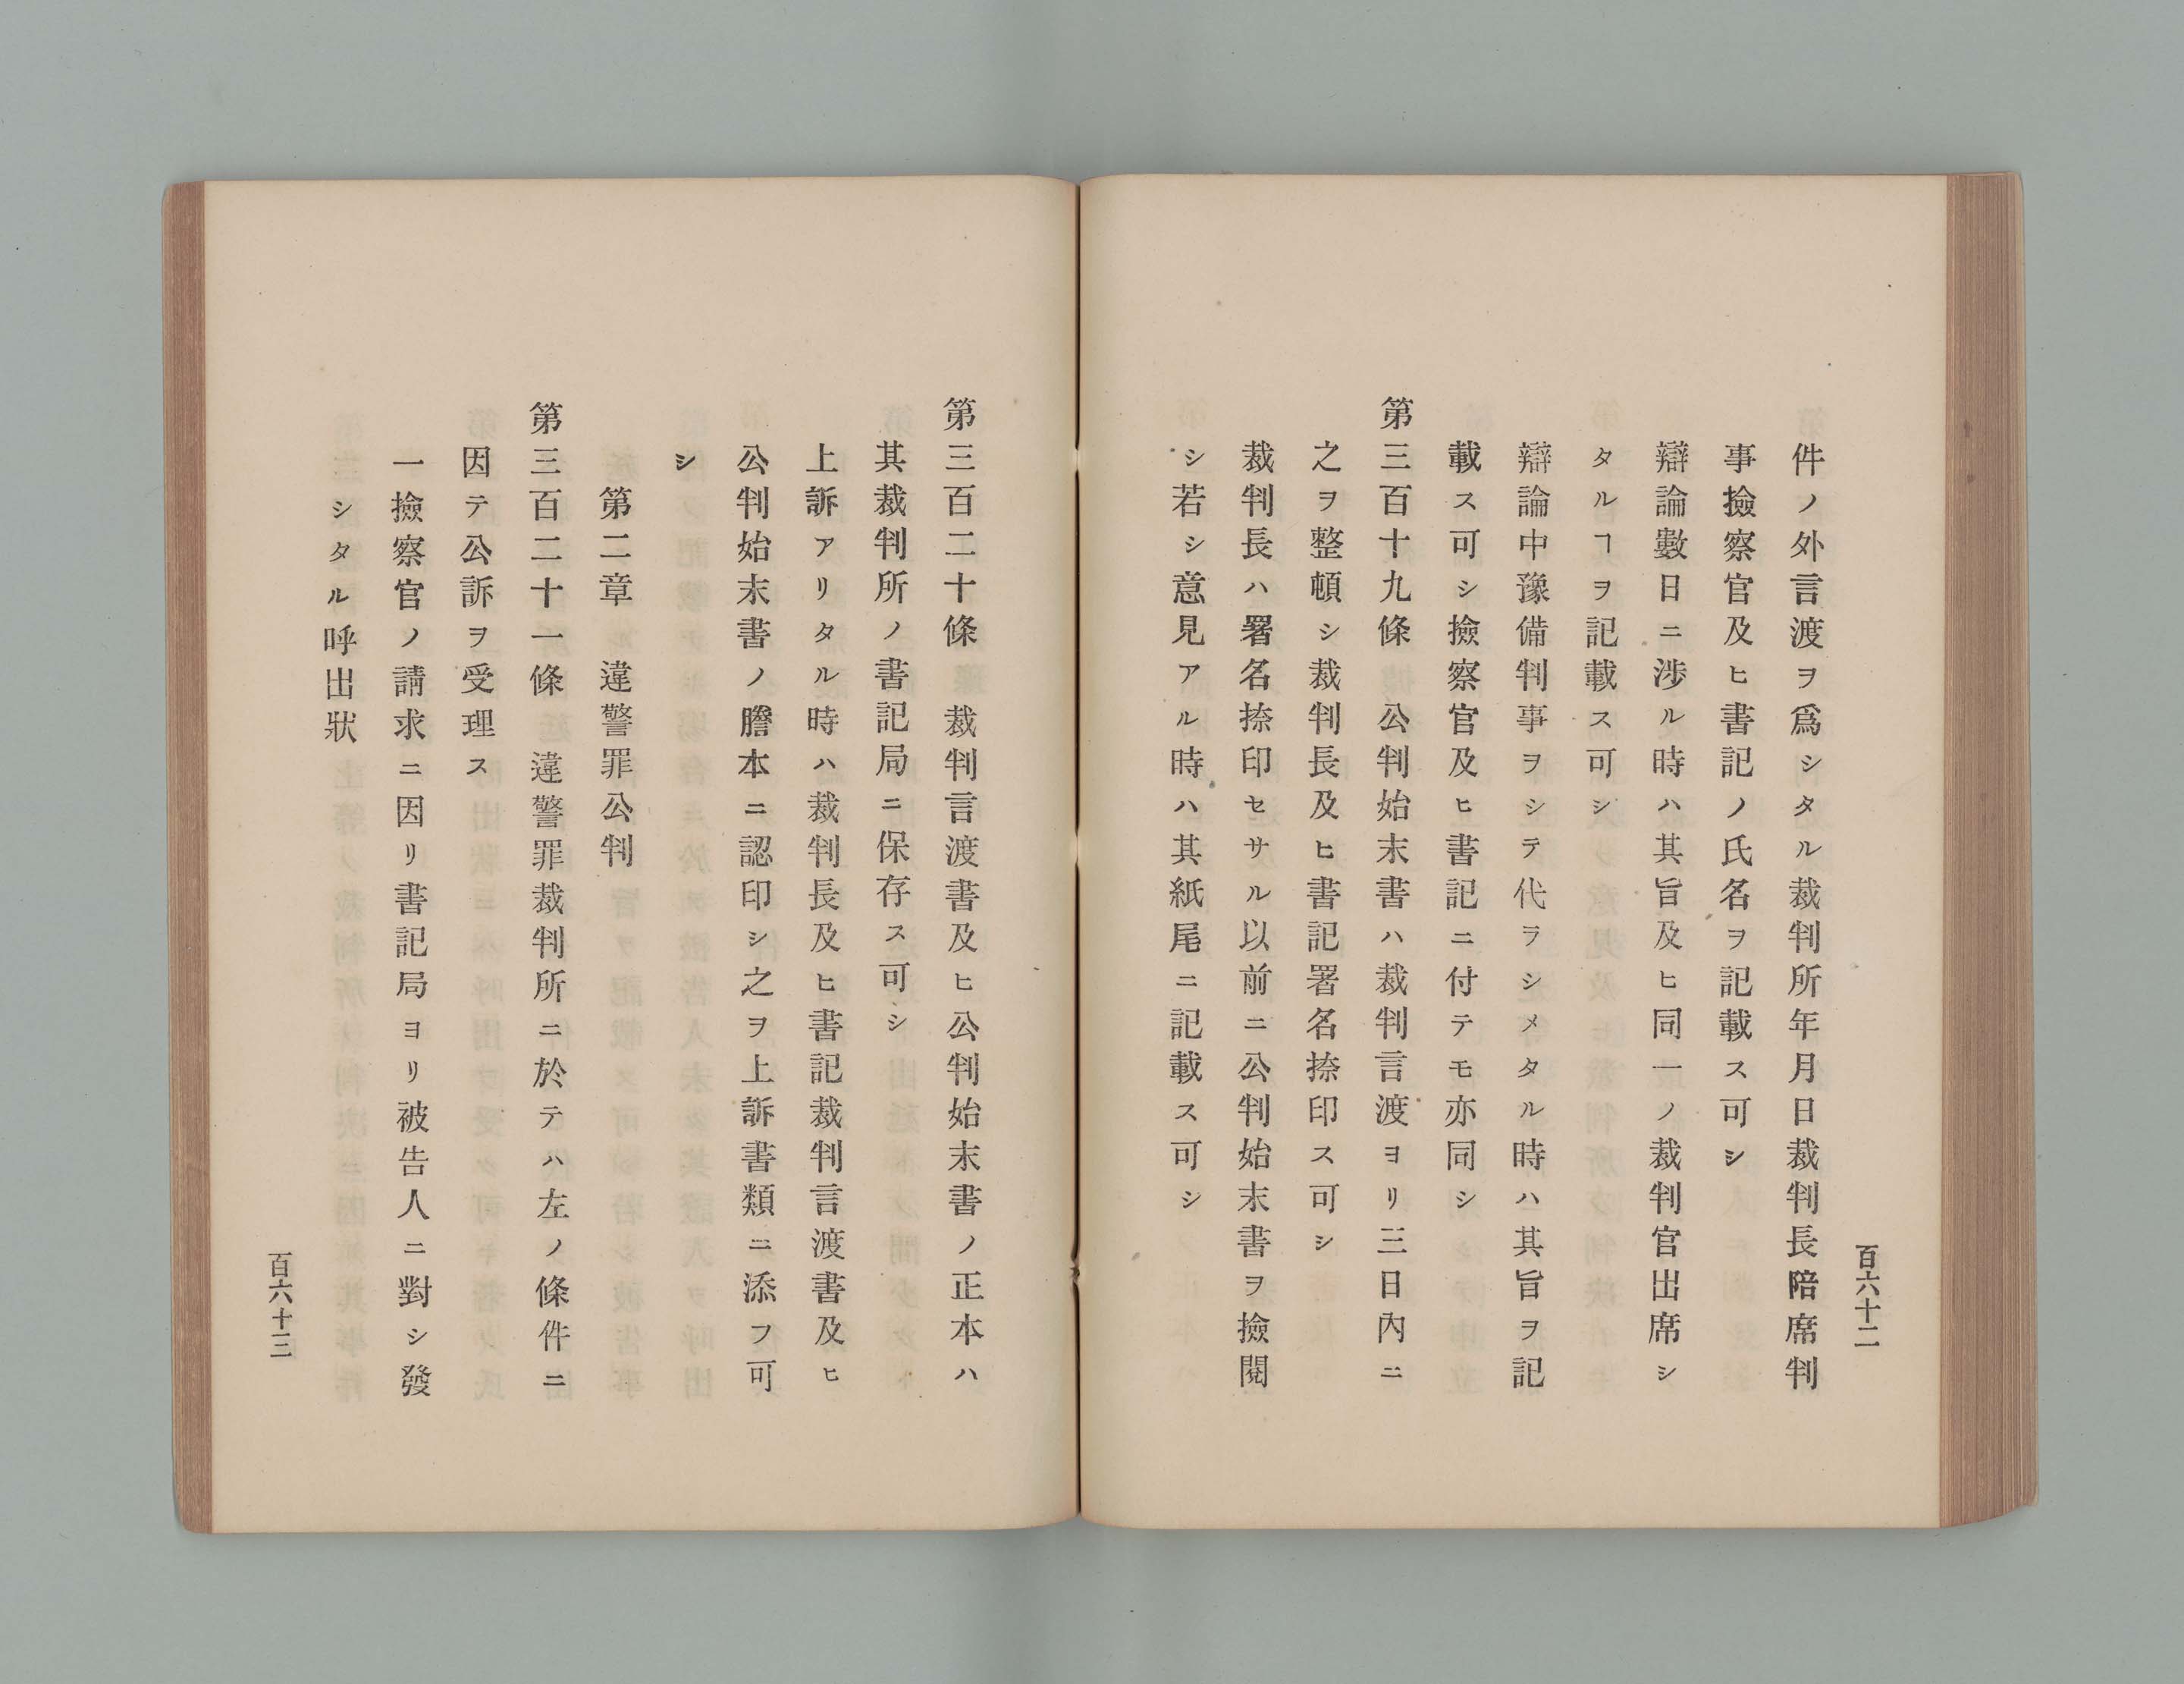 件ノ外言渡ヲ爲シタル裁判所年月日裁判長陪席判
事撿察官及ヒ書記ノ氏名ヲ記載ス可シ
辯論數日ニ涉ル時ハ其旨及ヒ同一ノ裁判官出席シ
タルヿヲ記載ス可シ
辯論中豫備判事ヲシテ代ラシメタル時ハ其旨ヲ記
載ス可シ撿察官及ヒ書記ニ付テモ亦同シ
第三百十九條 公判始末書ハ裁判言渡ヨリ三日內ニ
之ヲ整頓シ裁判長及ヒ書記署名捺印ス可シ
裁判長ハ署名捺印セサル以前ニ公判始末書ヲ撿閱
シ若シ意見アル時ハ其紙尾ニ記載ス可シ
百六十二
第三百二十條 裁判言渡書及ヒ公判始末書ノ正本ハ
其裁判所ノ書記局ニ保存ス可シ
上訴アリタル時ハ裁判長及ヒ書記裁判言渡書及ヒ
公判始末書ノ謄本ニ認印シ之ヲ上訴書類ニ添フ可
シ
第二章 違警罪公判
第三百二十一條 違警罪裁判所ニ於テハ左ノ條件ニ
因テ公訴ヲ受理ス
一撿察官ノ請求ニ因リ書記局ヨリ被告人ニ對シ發
シタル呼出狀
百六十三